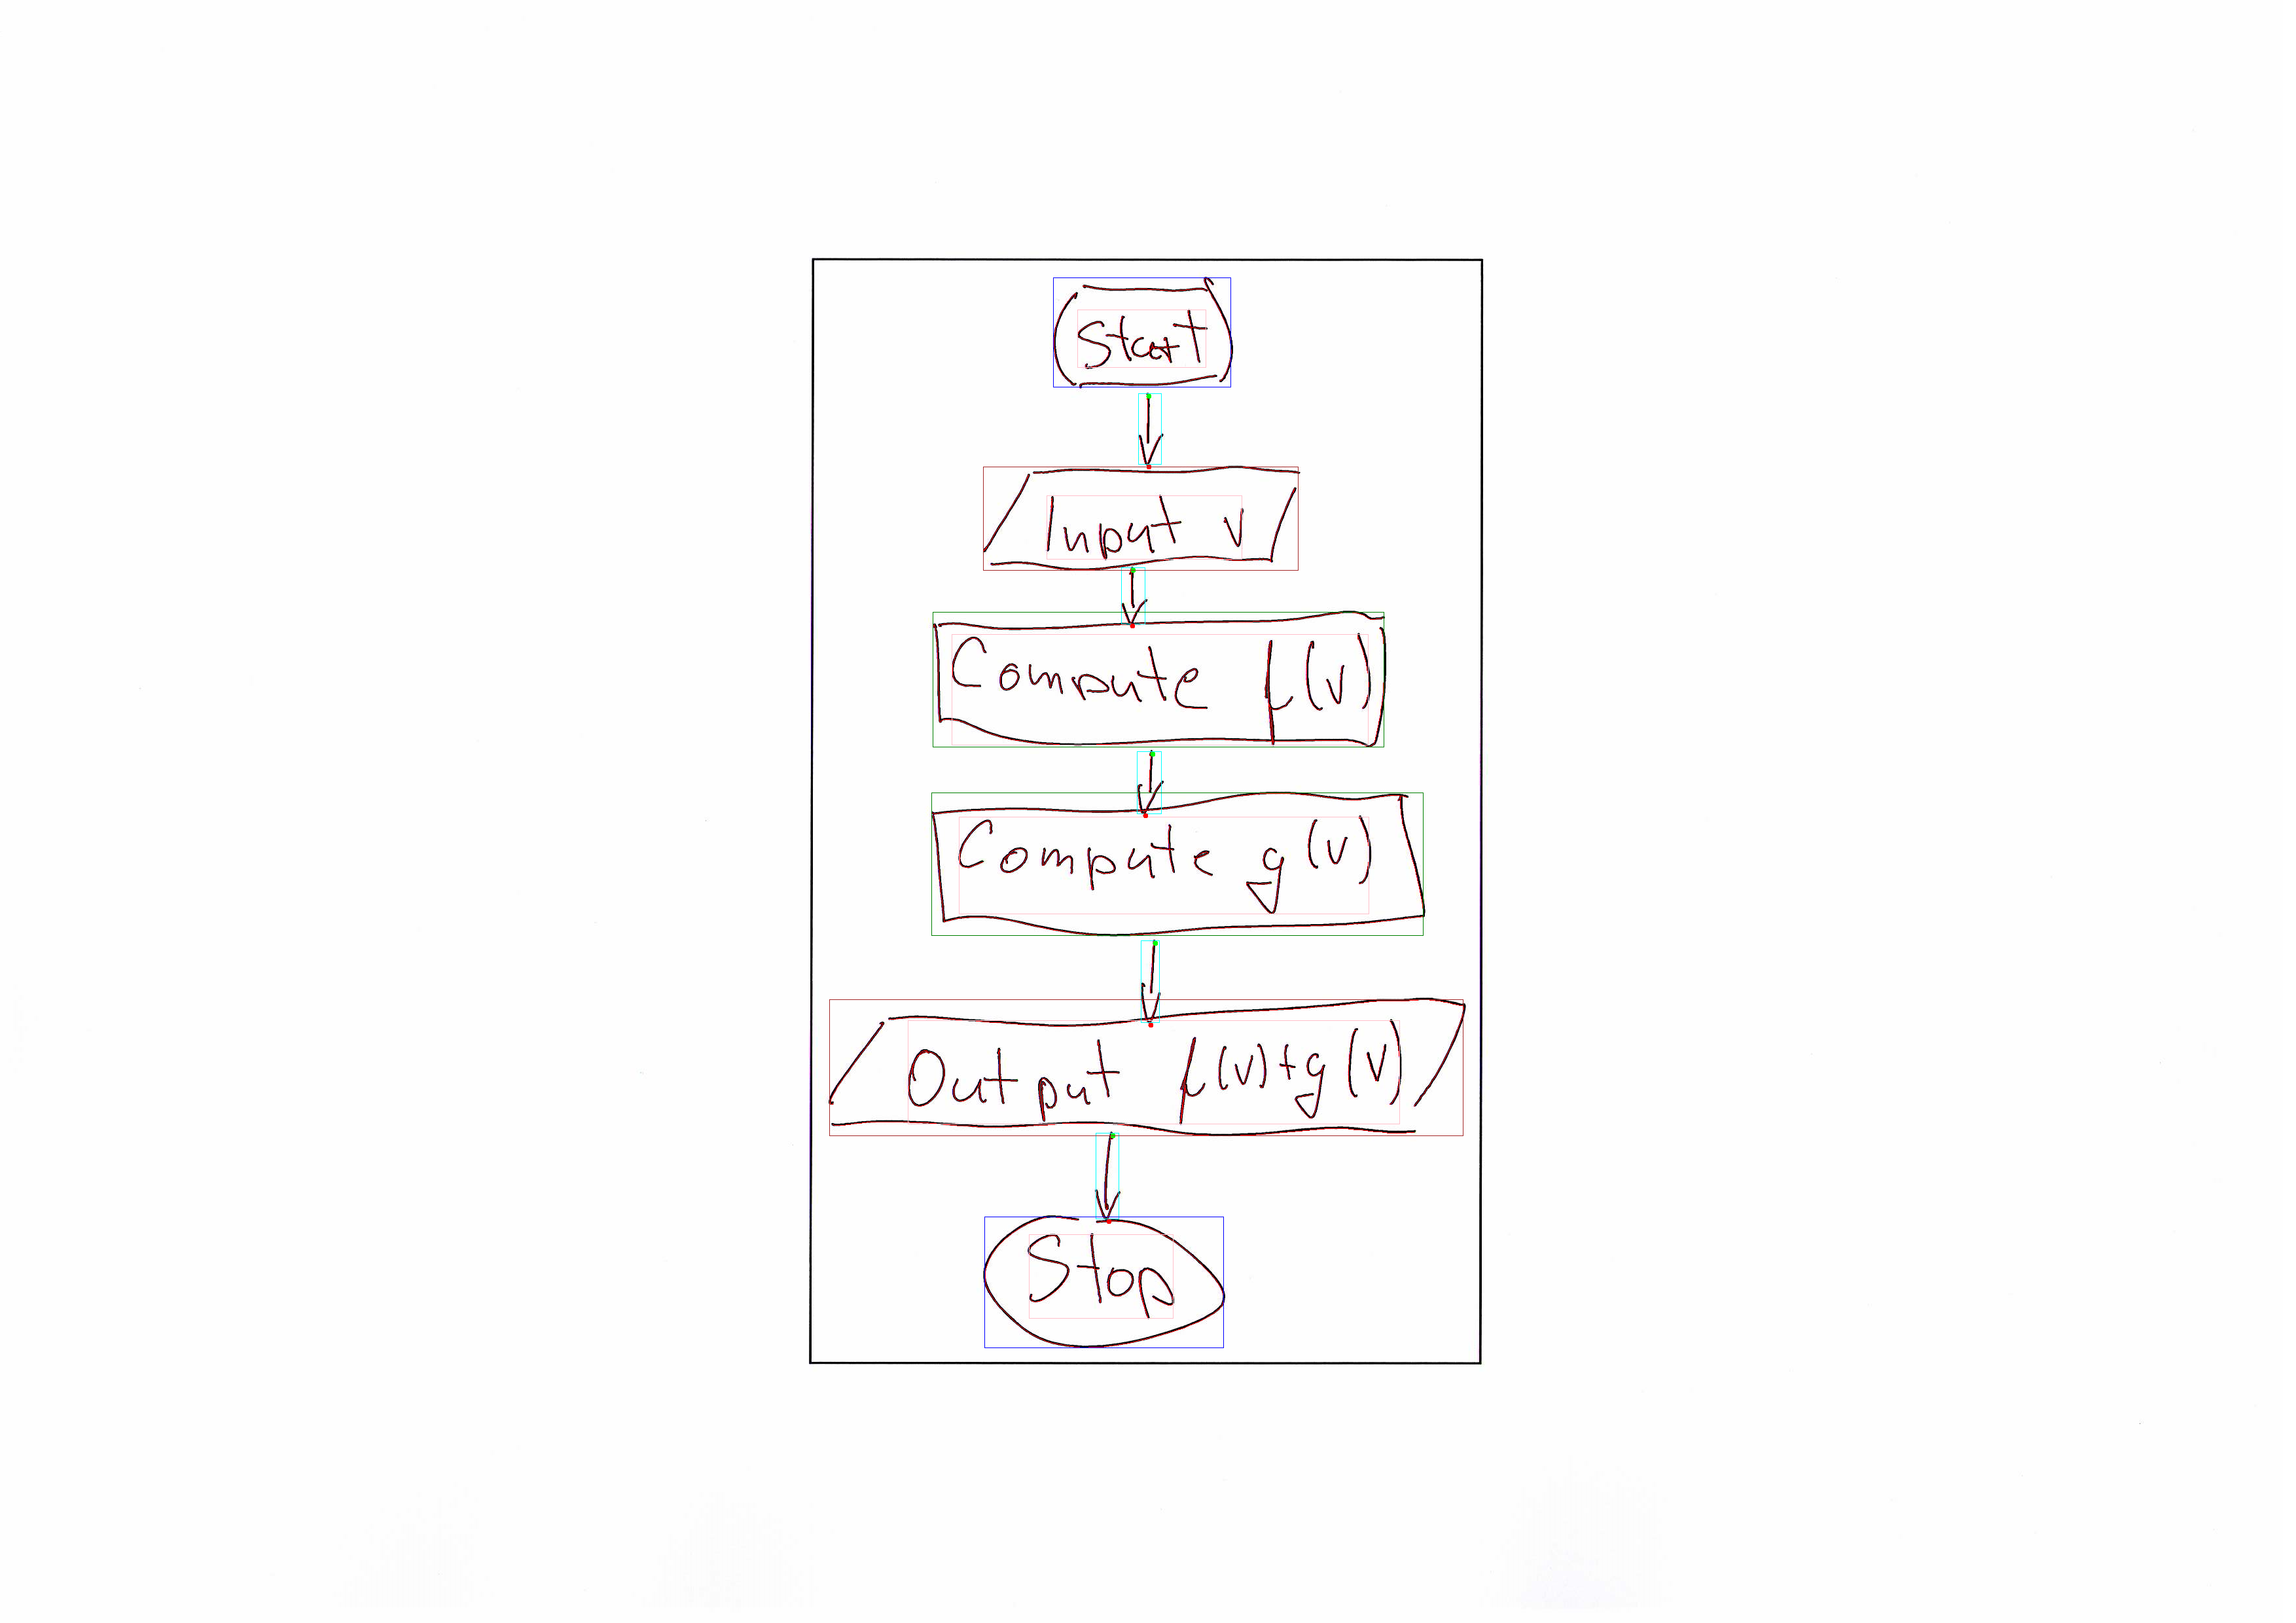 Start
Input v
Compute f(v)
Compute g(v)
Output f(v)+g(v)
Stop